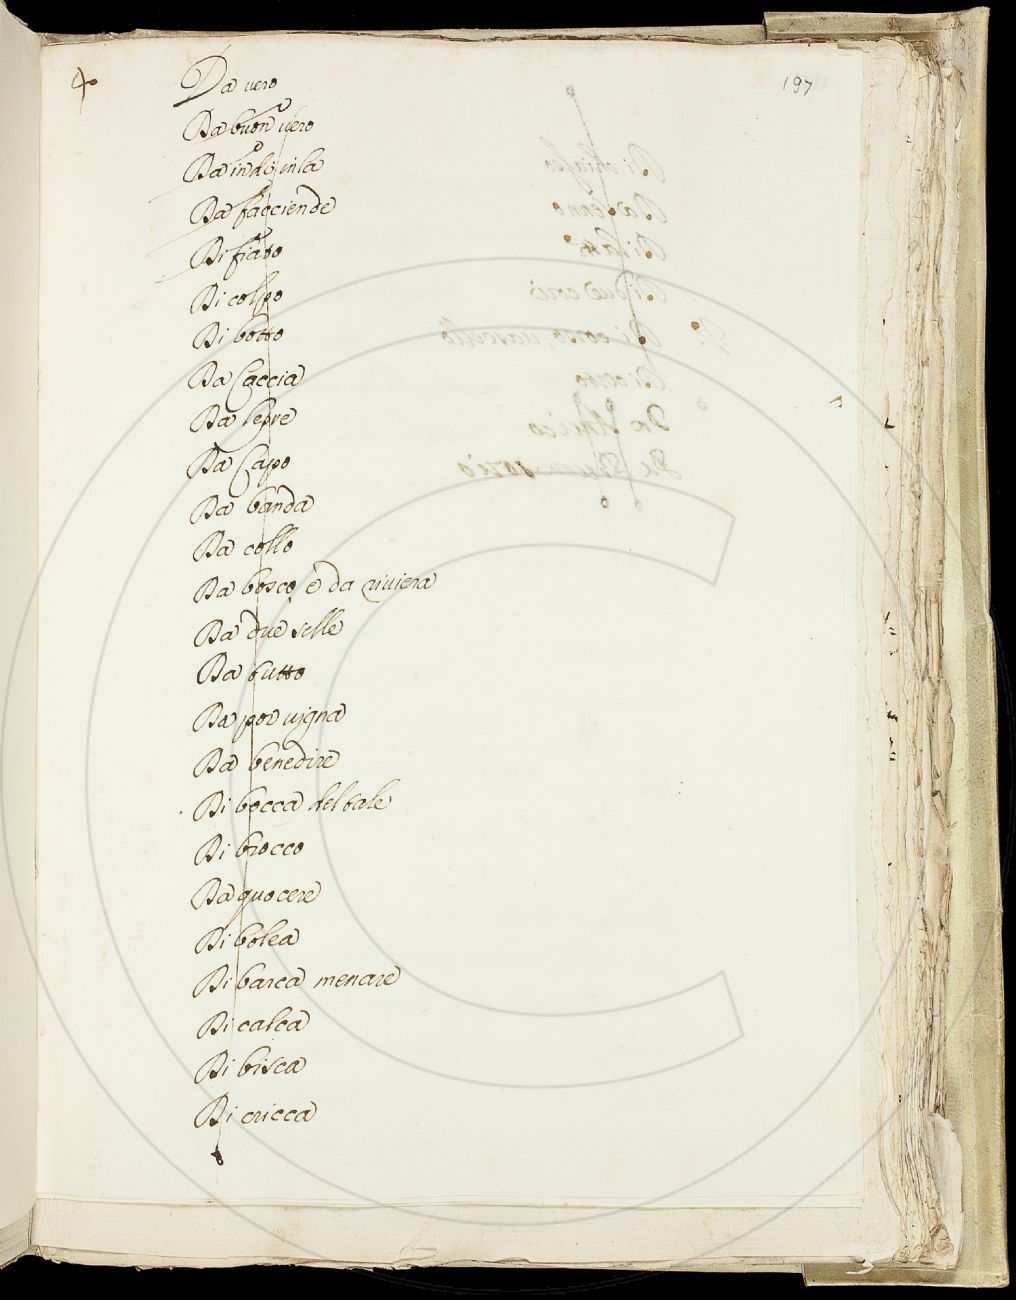 197
Da vero
Da buon vero
Da indi in la
Da facciende
Di fiato
Di colpo
Di botto
Da Caccia
Da lepre
Da Capo
Da banda
Da collo
Da bosco e da riviera
Da due selle
Da butto
Da por vigna
Da benedire
Di bocca del sale
Di brocco
Da quocere
Di bolea
Di barca menare
Di calca
Di bisca
Di cricca